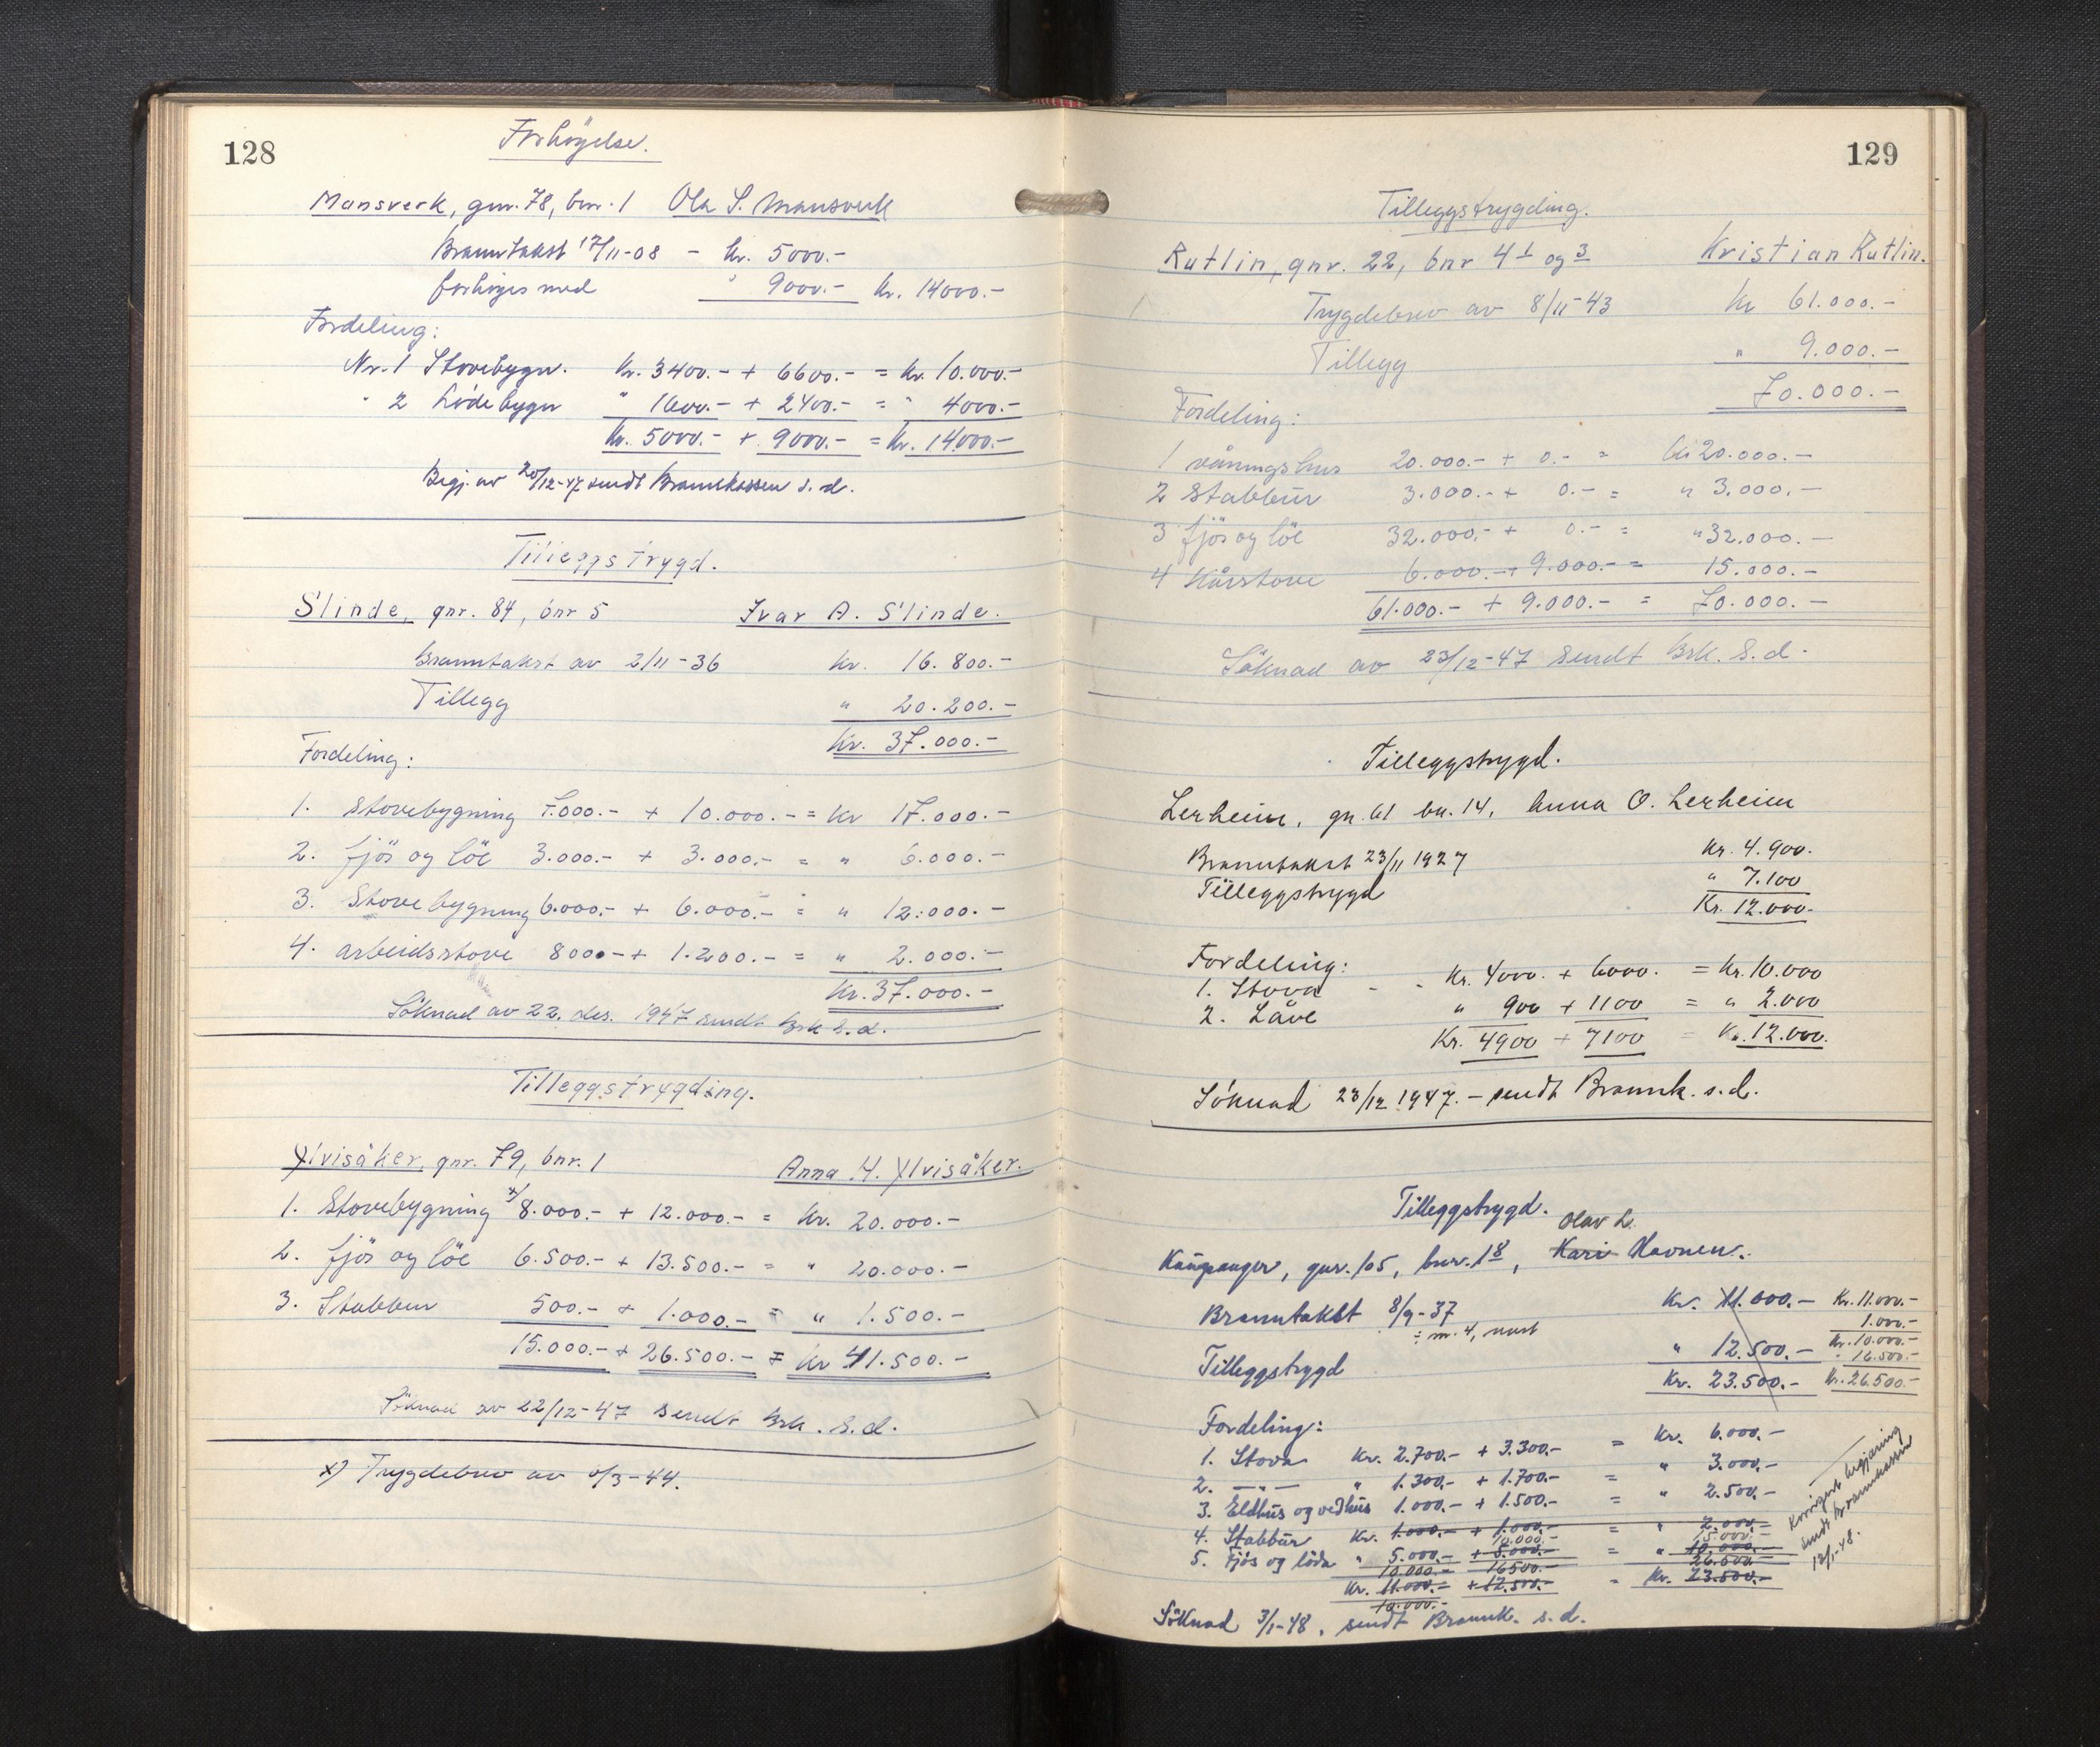 128
Forhöyelse.
Mansverk, gnr. 78, bnr. 1 Ola S. Mansverk
Branntakst 17/11-08 - kr. 5000.-
forhöyes med " 9000.- kr. 14000.-
Fordeling:
Nr. 1 Stovebygn. Kr. 3400.- + 6600.- = kr. 10.000.-
" 2 Lödebygn " 1600.- + 2400.- = " 4000.-
Kr. 5000.- + 9000.- = kr. 14000.-
Begj. av 20/12-47 sendt Brannkassen s. d.
Tilleggstrygd.
Slinde, gnr. 84, bnr 5 Ivar A. Slinde.
Branntakst av 2/11-36 kr. 16.800.-
Tillegg " 20.200.-
Kr. 37.000.-
Fordeling:
1. Stovebygning 7.000.- + 10.000.- = kr 17.000.-
2. fjös og löe 3.000.- + 3.000.- = " 6.000.-
3. Stovebygning 6.000.- + 6.000.- = " 12.000.-
4. arbeidsstove 800.- + 1.200.- = " 2.000.-
Kr. 37.000.-
Söknad av 22. des. 1947 sendt Brk s.d.
Tilleggstrygding.
Ylvisåker, gnr. 79, bnr. 1 Anna H. Ylvisåker.
1. Stovebygning x) 8.000.- + 12.000.- = kr. 20.000.-
2. fjös og löe 6.500.- + 13.500.- = " 20.000.-
3. Stabbur 500.- + 1.000.- = " 1.500.-
15.000.- + 26.500.- = kr 41.500.-
Söknad av 22/12-47 sendt Brk. s.d.
x) Trygdebrev av 6/3-44.
129
Tilleggstrygding.
Rutlin, gnr. 22, bnr 41 og 3 Kristian Rutlin.
Trygdebrev av 8/11-43 Kr 61.000.-
Tillegg " 9.000.-
70.000.-
Fordeling:
1 våningshus 20.000.- + 0.- = kr 20.000.-
2 Stabbur 3.000.- + 0.- = " 3.000.-
3 fjös og löe 32.000.- + 0.- = " 32.000.-
4 Kårstove 6.000.- + 9.000.- = 15.000.-
61.000.- + 9.000.- = 70.000.-
Söknad av 23/12-47 sendt Brk. s.d.
Tilleggstrygd.
Lerheim, gn. 61 bn. 14, Anna O. Lerheim
Branntakst 23/11 1927 Kr. 4.900.
Tilleggstrygd " 7.100
Kr. 12.000.-
Fordeling:
1. Stova - - Kr. 4000. + 6000. = Kr. 10.000
2. Låve " 900 + 1100 = " 2.000
Kr. 4900 + 7100 = Kr. 12.000.
Söknad 23/12 1947. - sendt Brannk. s.d.
Tilleggstrygd.
Olav L.
Kaupanger, gnr. 105, bnr. 18, Kari Havnen.
Branntakst 8/9-37 Kr. 11.000.- Kr. 11.000.-
÷ nr. 4, naust 1.000.-
Kr. 10.000.-
Tilleggstrygd " 12.500.- " 16.500.-
Kr. 23.500.- Kr. 26.500.-
Fordeling:
1. Stova Kr. 2.700.- + 3.300.- = Kr. 6.000.-
2. -"- " 1.300.- + 1.700.- = " 3.000.-
3. Eldhus og vedhus 1.000.- + 1.500.- = " 2.500.-
4. Stabbur Kr. 1.000.- + 1.000.- = " 2.000.-
10.000.- 15.000.-
5. Fjös og löda " 5.000.- + 5.000.- = " 10.000.-
10.000.- 16500.- 26.500.-
Kr. 11.000.- + 12.500.- = Kr. 23.500.-
10.000.-
Söknad 3/1-48, sendt Brannk. s.d.
Korrigert begjæring
sendt Brannkassen
12/1-48.